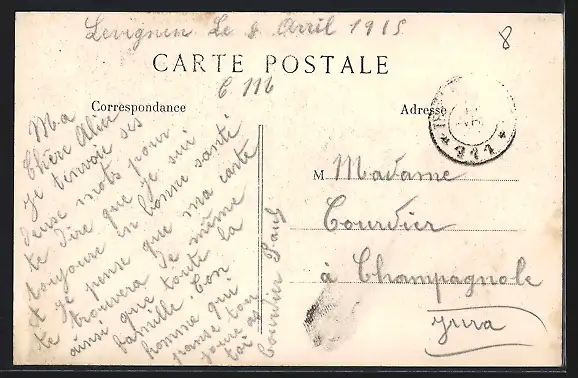 Levignen Le 8 Avril 1915
8
CARTE POSTALE
C M
Correspondance
Adresse
Ma
Chère Alice
je t'envoie ses
deuse mots pour
te dire que je sui
toujours en bonne santé
et je panse que ma carte
te trouvera de même
ainsi que toute la
famille. Ton
homme qui
panse tou
joure as
toi
Courdier Paul
M Madame
Courdier
à Champagnole
Jura